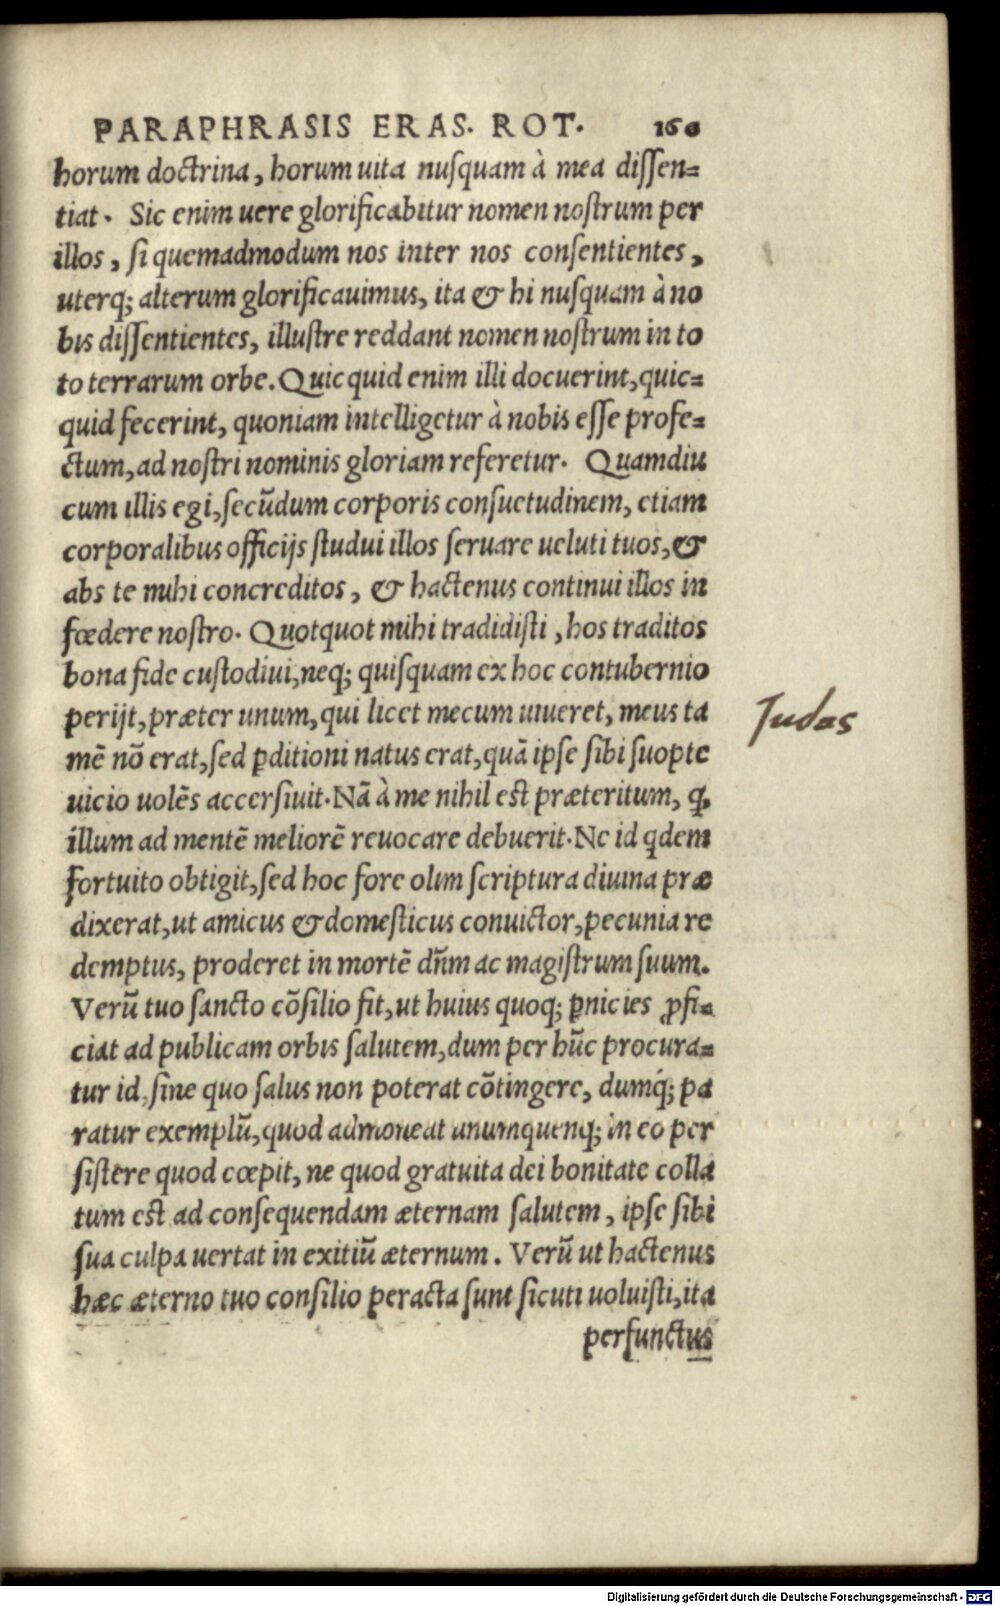 PARAPHRASIS ERAS. ROT. 160
horum doctrina, horum uita nusquam à mea dissen=
tiat. Sic enim uere glorificabitur nomen nostrum per
illos, si quemadmodum nos inter nos consentientes,
uterq; alterum glorificauimus, ita & hi nusquam à no
bis dissentientes, illustre reddant nomen nostrum in to
to terrarum orbe. Quicquid enim illi docuerint, quic=
quid fecerint, quoniam intelligetur à nobis esse profe=
ctum, ad nostri nominis gloriam referetur. Quamdiu
cum illis egi, secũdum corporis consuetudinem, etiam
corporalibus officijs studui illos seruare ueluti tuos, &
abs te mihi concreditos, & hactenus continui illos in
fœdere nostro. Quotquot mihi tradidisti, hos traditos
bona fide custodiui, neq; quisquam ex hoc contubernio
perijt, præter unum, qui licet mecum uiueret, meus ta
mẽ nõ erat, sed ꝑditioni natus erat, quã ipse sibi suopte
uicio uolẽs accersiuit. Nã à me nihil est præteritum, ꝙ
illum ad mentẽ meliorẽ reuocare debuerit. Ne id qdem
fortuito obtigit, sed hoc fore olim scriptura diuina præ
dixerat, ut amicus & domesticus conuictor, pecunia re
demptus, proderet in mortẽ dñm ac magistrum suum.
Verũ tuo sancto cõsilio fit, ut huius quoq; ꝑnicies ꝓfi=
ciat ad publicam orbis salutem, dum per hũc procura=
tur id, sine quo salus non poterat cõtingere, dumq́; pa
ratur exemplũ, quod admoneat unumquenq; in eo per
sistere quod cœpit, ne quod gratuita dei bonitate colla
tum est ad consequendam æternam salutem, ipse sibi
sua culpa uertat in exitiũ æternum. Verũ ut hactenus
hæc æterno tuo consilio ꝑeracta sunt sicuti uoluisti, ita
perfunctus
Judas
Digitalisierung gefördert durch die Deutsche Forschungsgemeinschaft - DFG